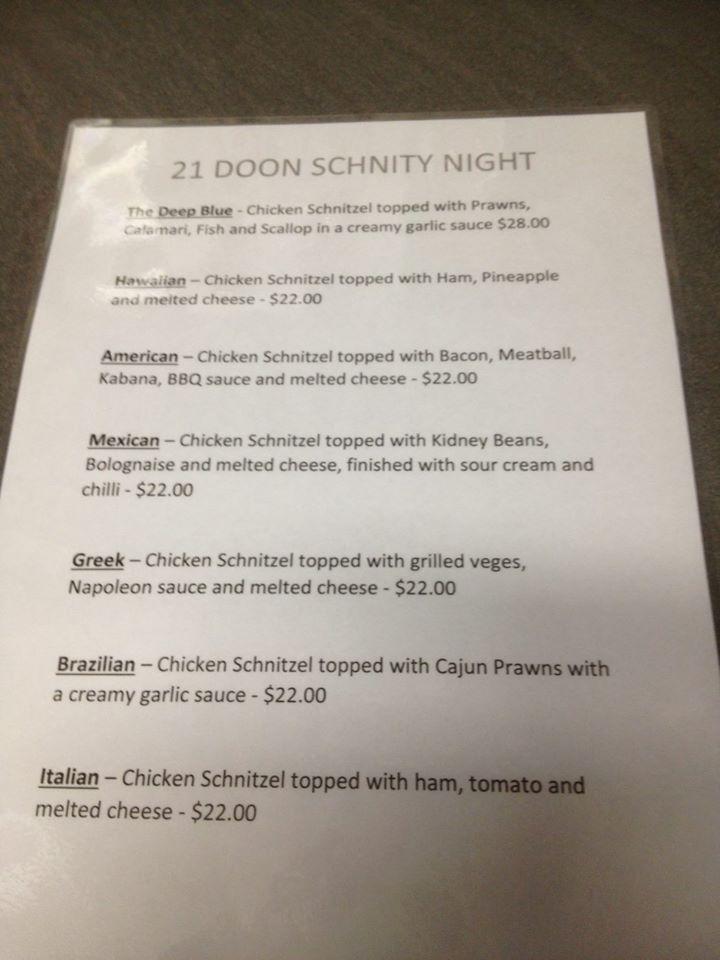 21 DOON SCHNITY NIGHT
The Deep Blue - Chicken Schnitzel topped with Prawns,
Calamari, Fish and Scallop in a creamy garlic sauce $28.00
Hawaiian – Chicken Schnitzel topped with Ham, Pineapple
and melted cheese - $22.00
American – Chicken Schnitzel topped with Bacon, Meatball,
Kabana, BBQ sauce and melted cheese - $22.00
Mexican – Chicken Schnitzel topped with Kidney Beans,
Bolognaise and melted cheese, finished with sour cream and
chilli - $22.00
Greek – Chicken Schnitzel topped with grilled veges,
Napoleon sauce and melted cheese - $22.00
Brazilian – Chicken Schnitzel topped with Cajun Prawns with
a creamy garlic sauce - $22.00
Italian – Chicken Schnitzel topped with ham, tomato and
melted cheese - $22.00